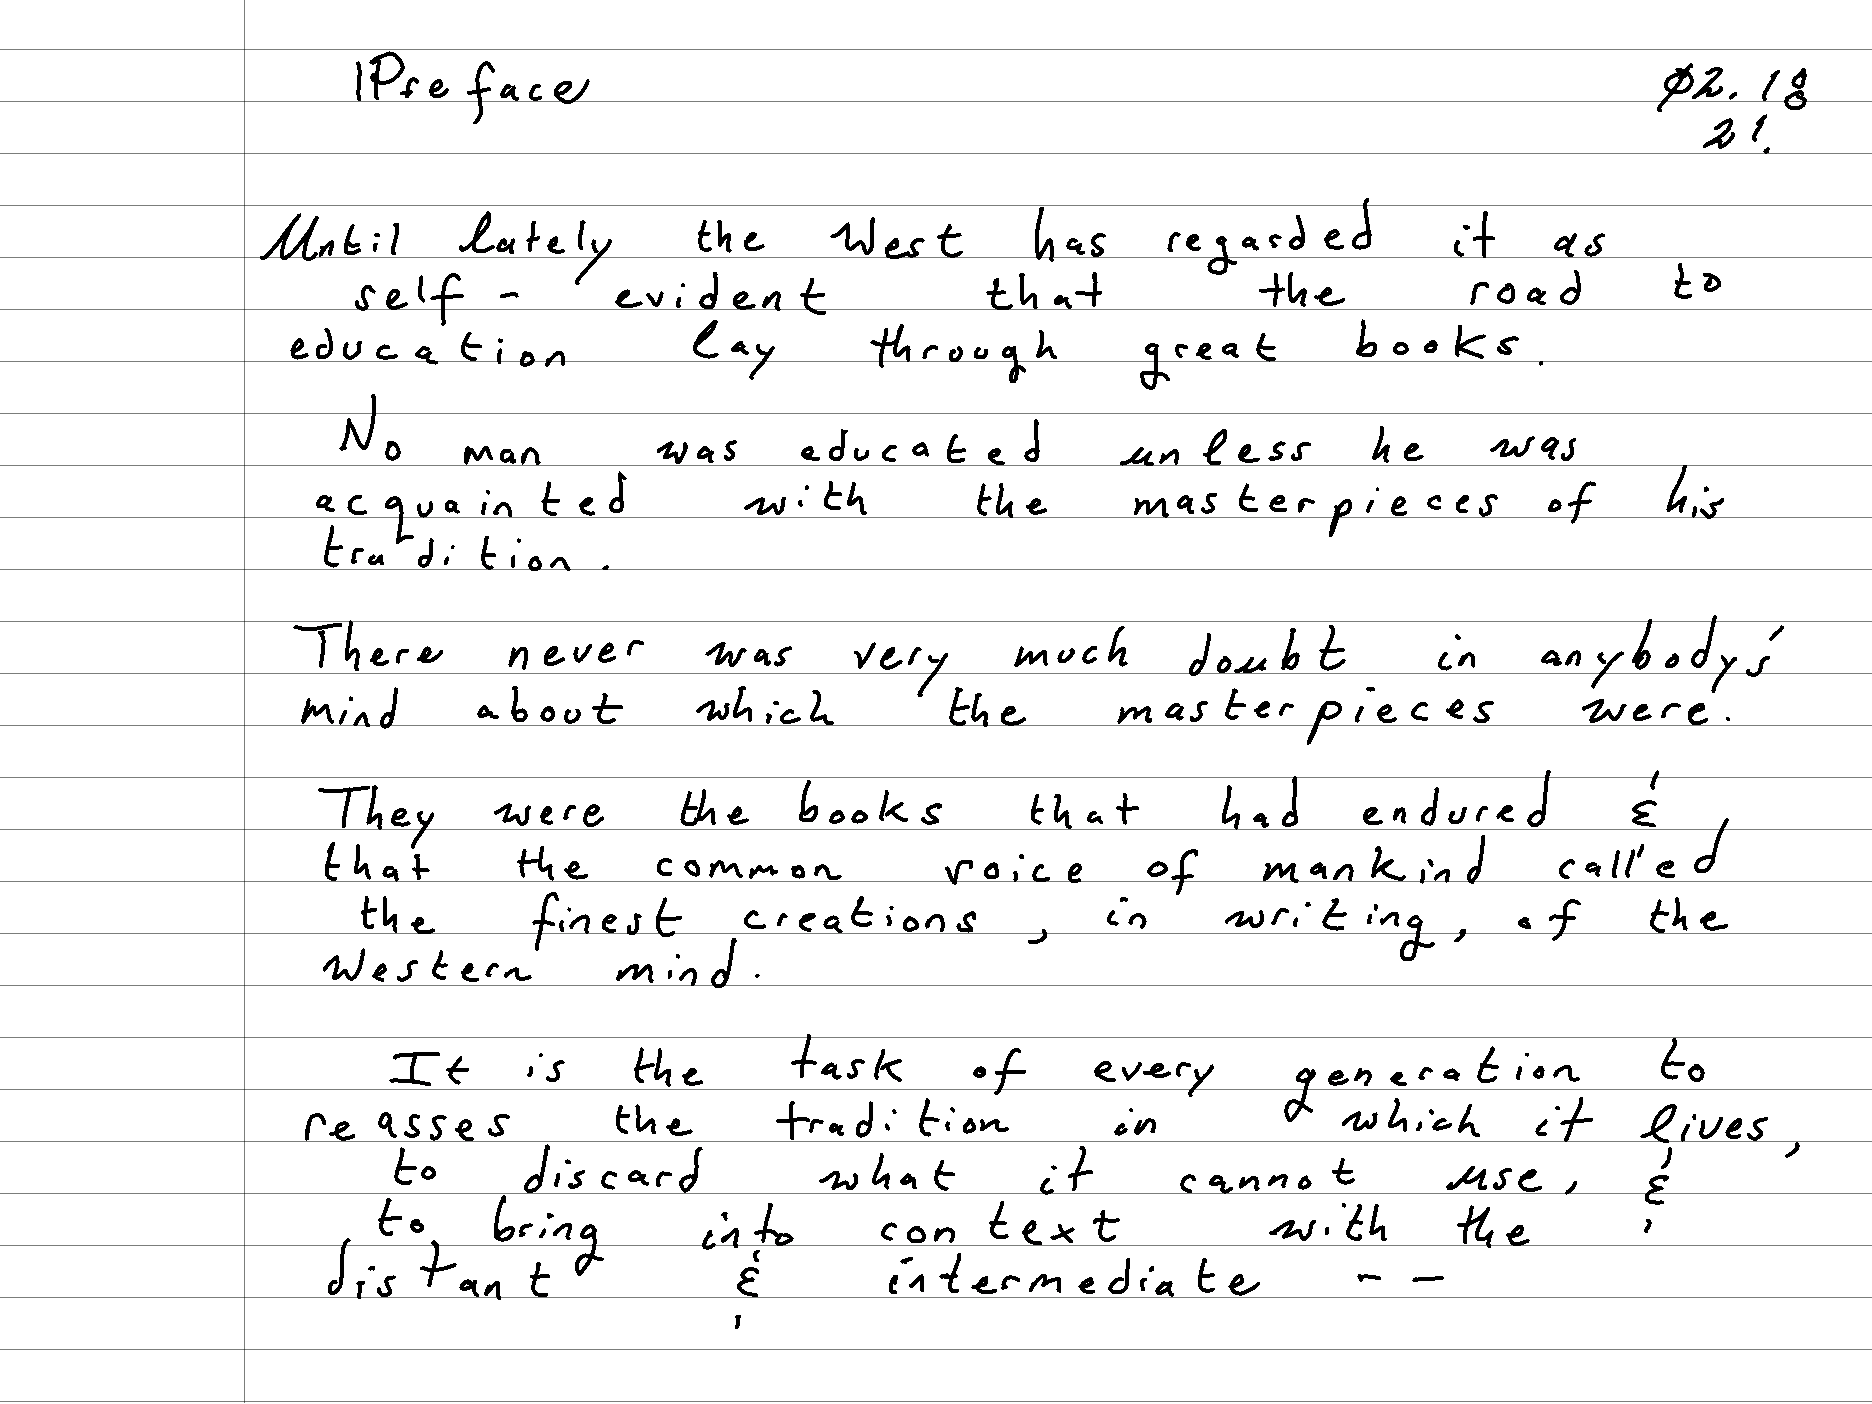 Preface
02.18
21.
Until lately the West has regarded it as
self- evident that the road to
education lay through great books.
No man was educated unless he was
acquainted with the masterpieces of his
tradition.
There never was very much doubt in anybody's
mind about which the masterpieces were.
They were the books that had endured &
that the common voice of mankind called
the finest creations, in writing, of the
Western mind.
It is the task of every generation to
reasses the tradition in which it lives,
to discard what it cannot use, &
to bring into context with the
distant & intermediate --